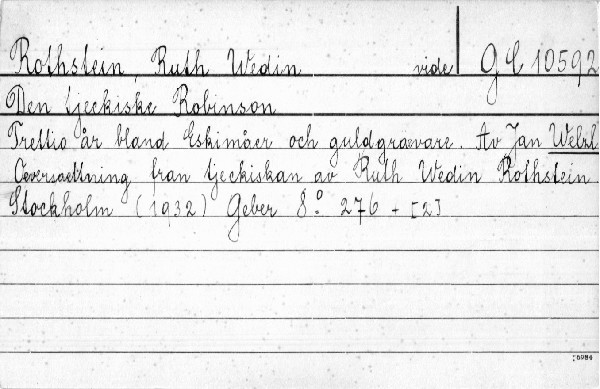 Rothstein, Ruth Wedin vide G C 10592
Den tjeckiske Robinson
Trettio år bland Eskimåer och guldgrävare. Av Jan Welzl
Oeversaettning från tjeckiskan av Ruth Wedin Rothstein
Stockholm (1932) Geber 8° 276 + [2]